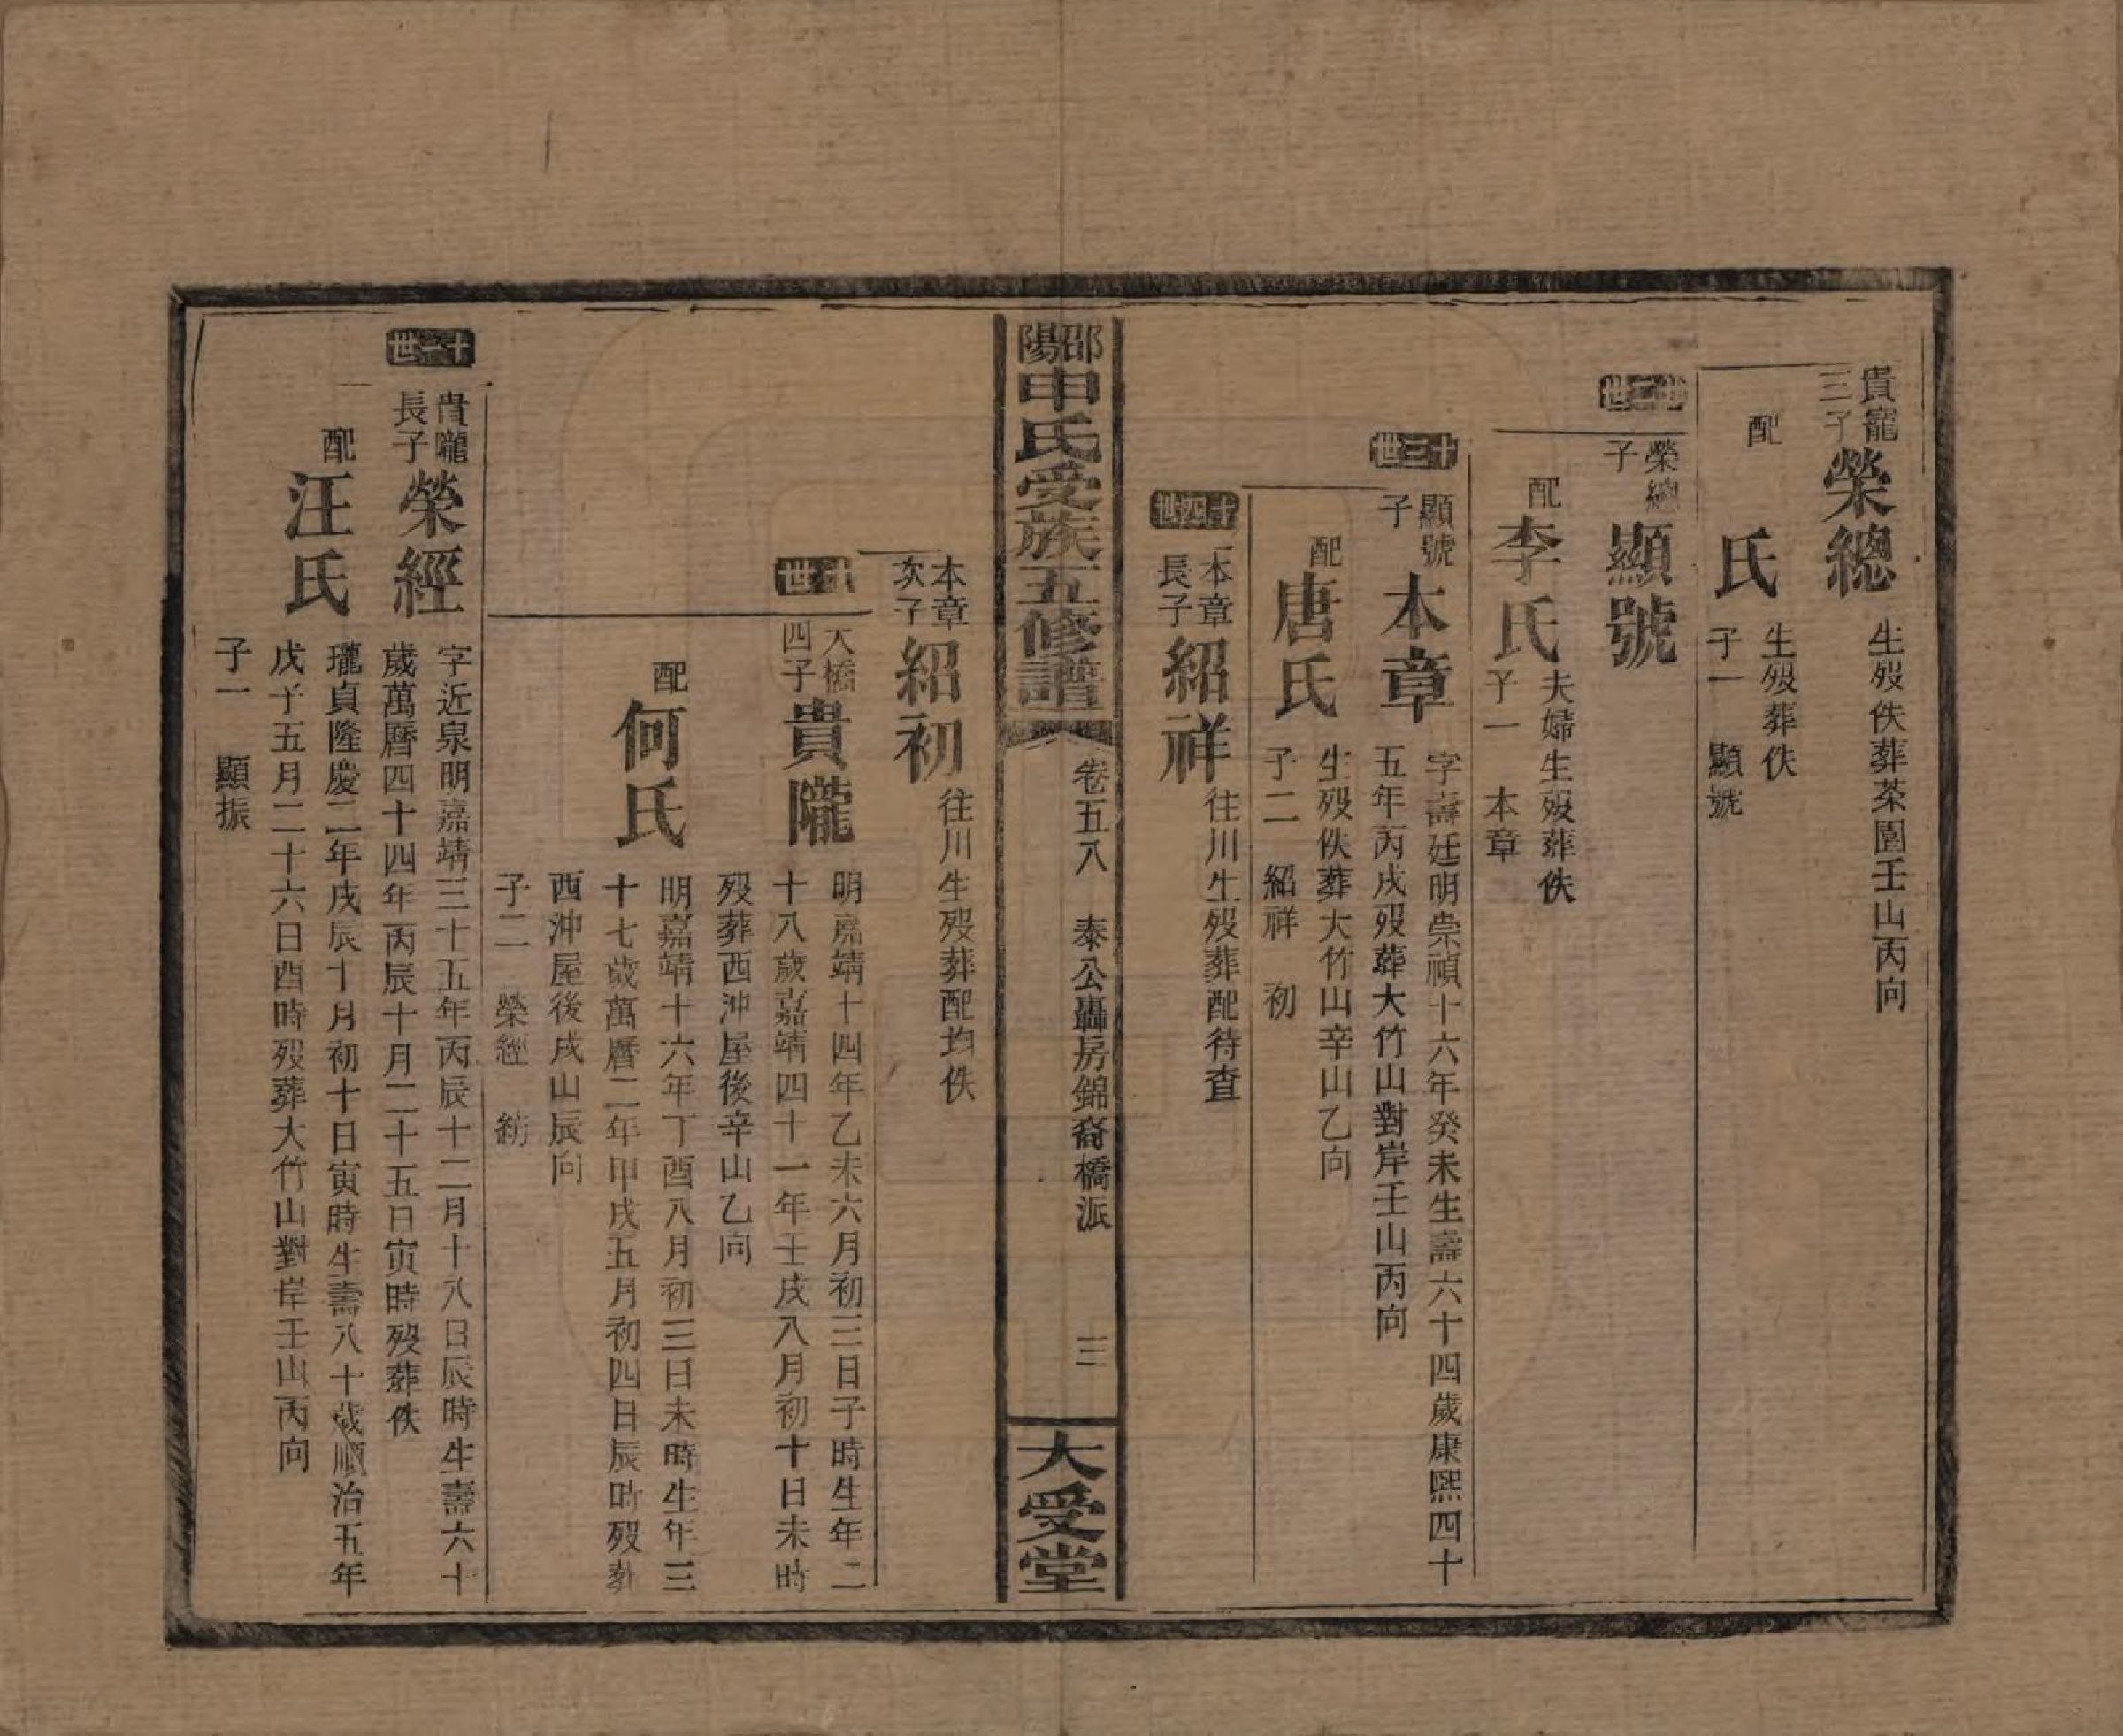 貴寵
三子
榮總
生殁佚葬茶園壬山丙向
配
氏
生殁葬佚
子一　顯號
十二世
榮總
子
顯號
配
李氏
夫婦生殁葬佚
子一　本章
十三世
顯號
子
本章
字壽廷明崇禎十六年癸未生壽六十四歲康熙四十
五年丙戌殁葬大竹山對岸壬山丙向
配
唐氏
生殁佚葬大竹山辛山乙向
子二　紹祥　初
十四世
本章
長子
紹祥
往川生殁葬配待查
邵陽申氏受族五修譜
卷五八　泰公轟房錦裔橋派
三
大受堂
本章
次子
紹初
往川生殁葬配均佚
十世
大橋
四子
貴隴
明嘉靖十四年乙未六月初三日子時生年二
十八歲嘉靖四十一年壬戌八月初十日未時
殁葬西沖屋後辛山乙向
配
何氏
明嘉靖十六年丁酉八月初三日未時生年三
十七歲萬曆二年甲戌五月初四日辰時殁葬
西沖屋後戌山辰向
子二　榮經　紡
十一世
貴隴
長子
榮經
字近泉明嘉靖三十五年丙辰十二月十八日辰時生壽六十
歲萬曆四十四年丙辰十月二十五日寅時殁葬佚
配
汪氏
瓏貞隆慶二年戌辰十月初十日寅時生壽八十歲順治五年
戊子五月二十六日酉時殁葬大竹山對岸壬山丙向
子一　顯振